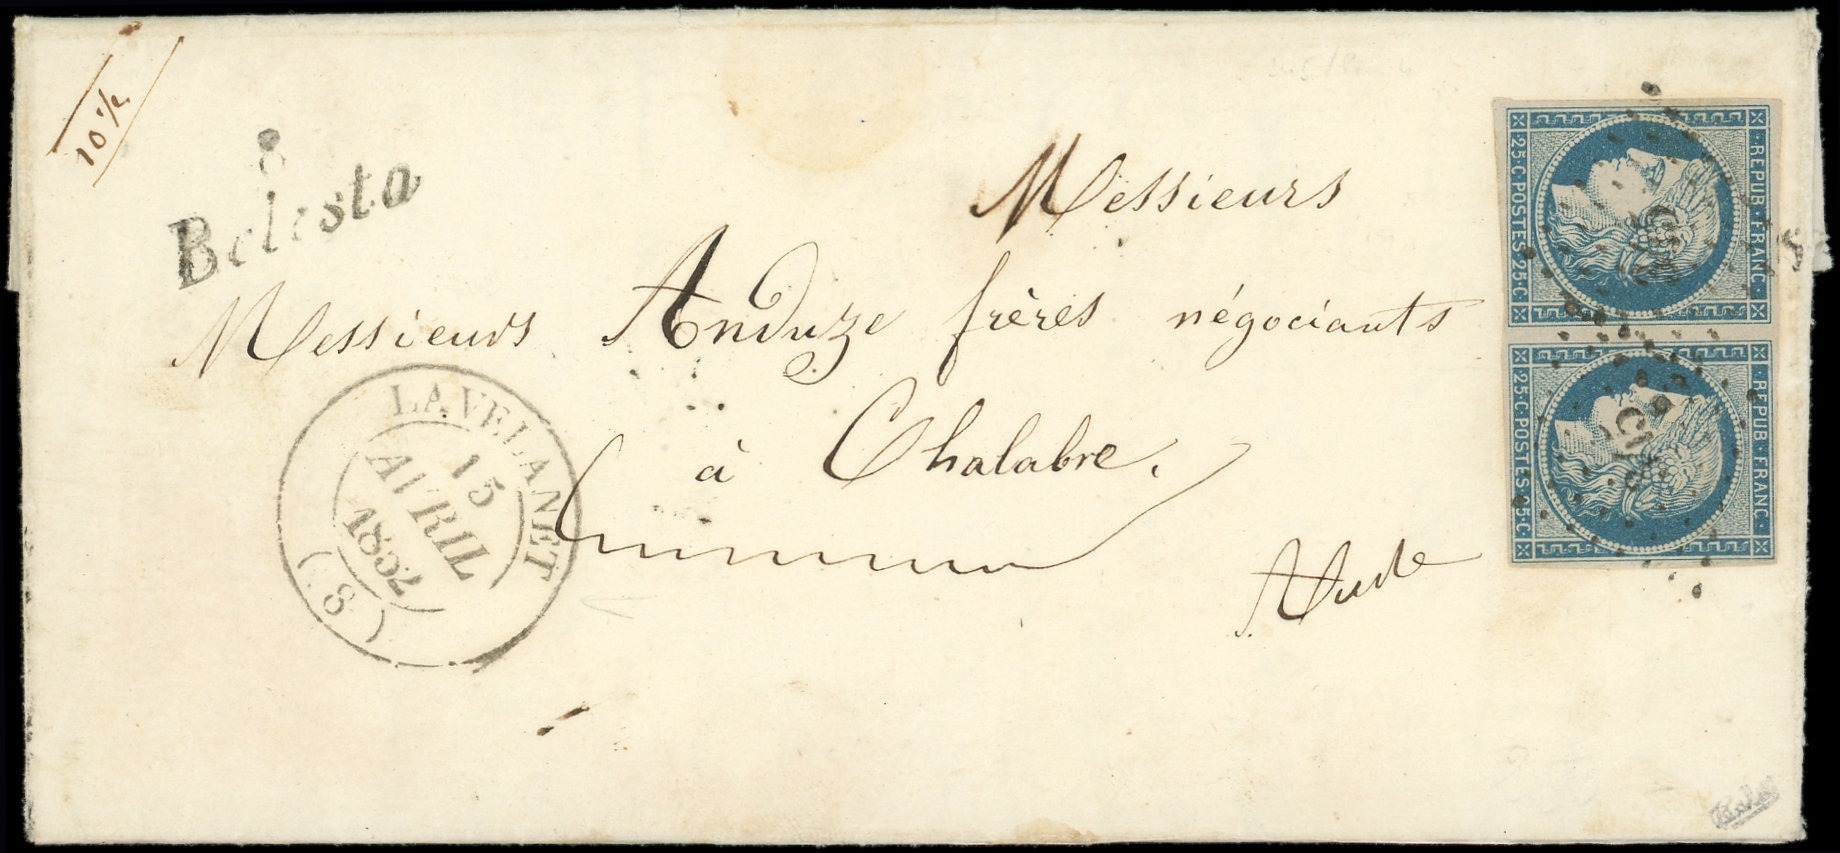 10 %
8
Belesta
Messieurs
Messieurs Anduze frères négociants
à Chalabre.
Aude
LAVELANET
15
AVRIL
1852
(8)
REPUB·FRANC·
25·C·POSTES·25·C·
REPUB·FRANC·
25·C·POSTES·25·C·